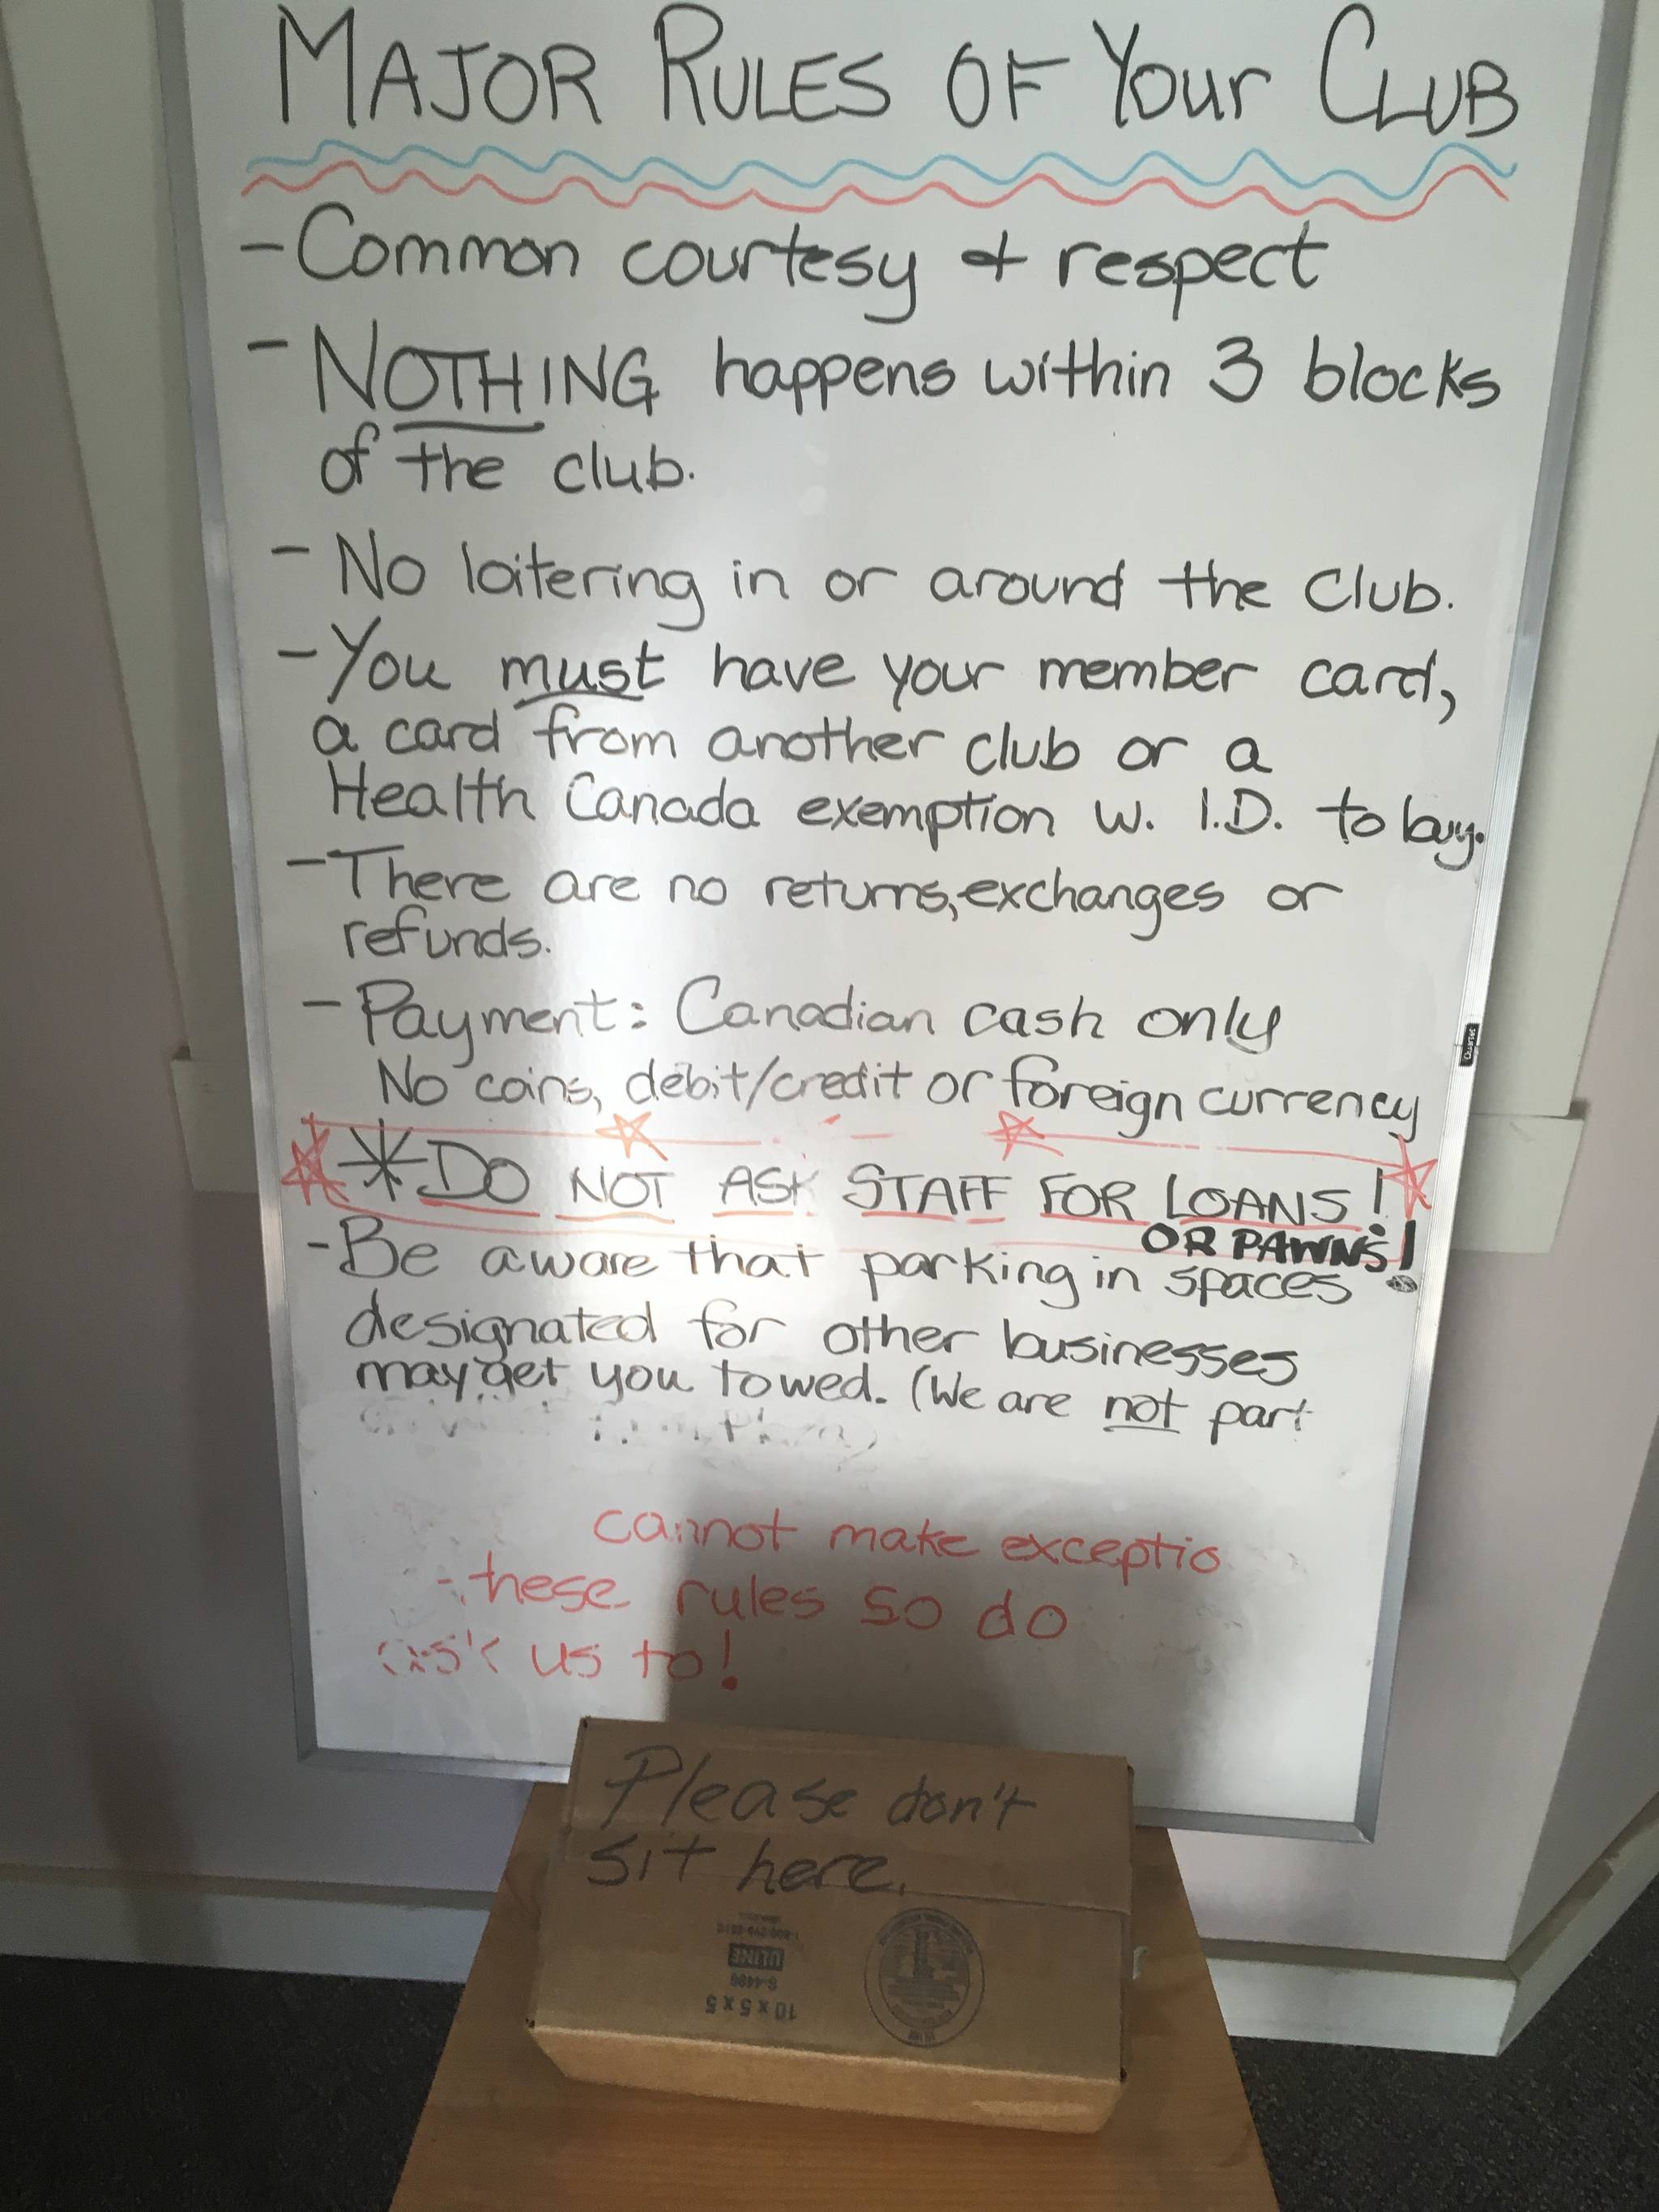 MAJOR RULES OF Your CLUB
- Common courtesy & respect
- NOTHING happens within 3 blocks
of the club.
- No loitering in or around the Club.
- You must have your member card,
a card from another club or a
Health Canada exemption w. I.D. to buy.
- There are no returns, exchanges or
refunds.
- Payment: Canadian cash only
No coins, debit/credit or foreign currency
* DO NOT ASK STAFF FOR LOANS!
OR PAWNS!
- Be aware that parking in spaces
designated for other businesses
may get you towed. (We are not part
cannot make exceptio
these rules so do
ask us to!
Please don't
sit here.
ULINE
S-4486
10 x 5 x 5